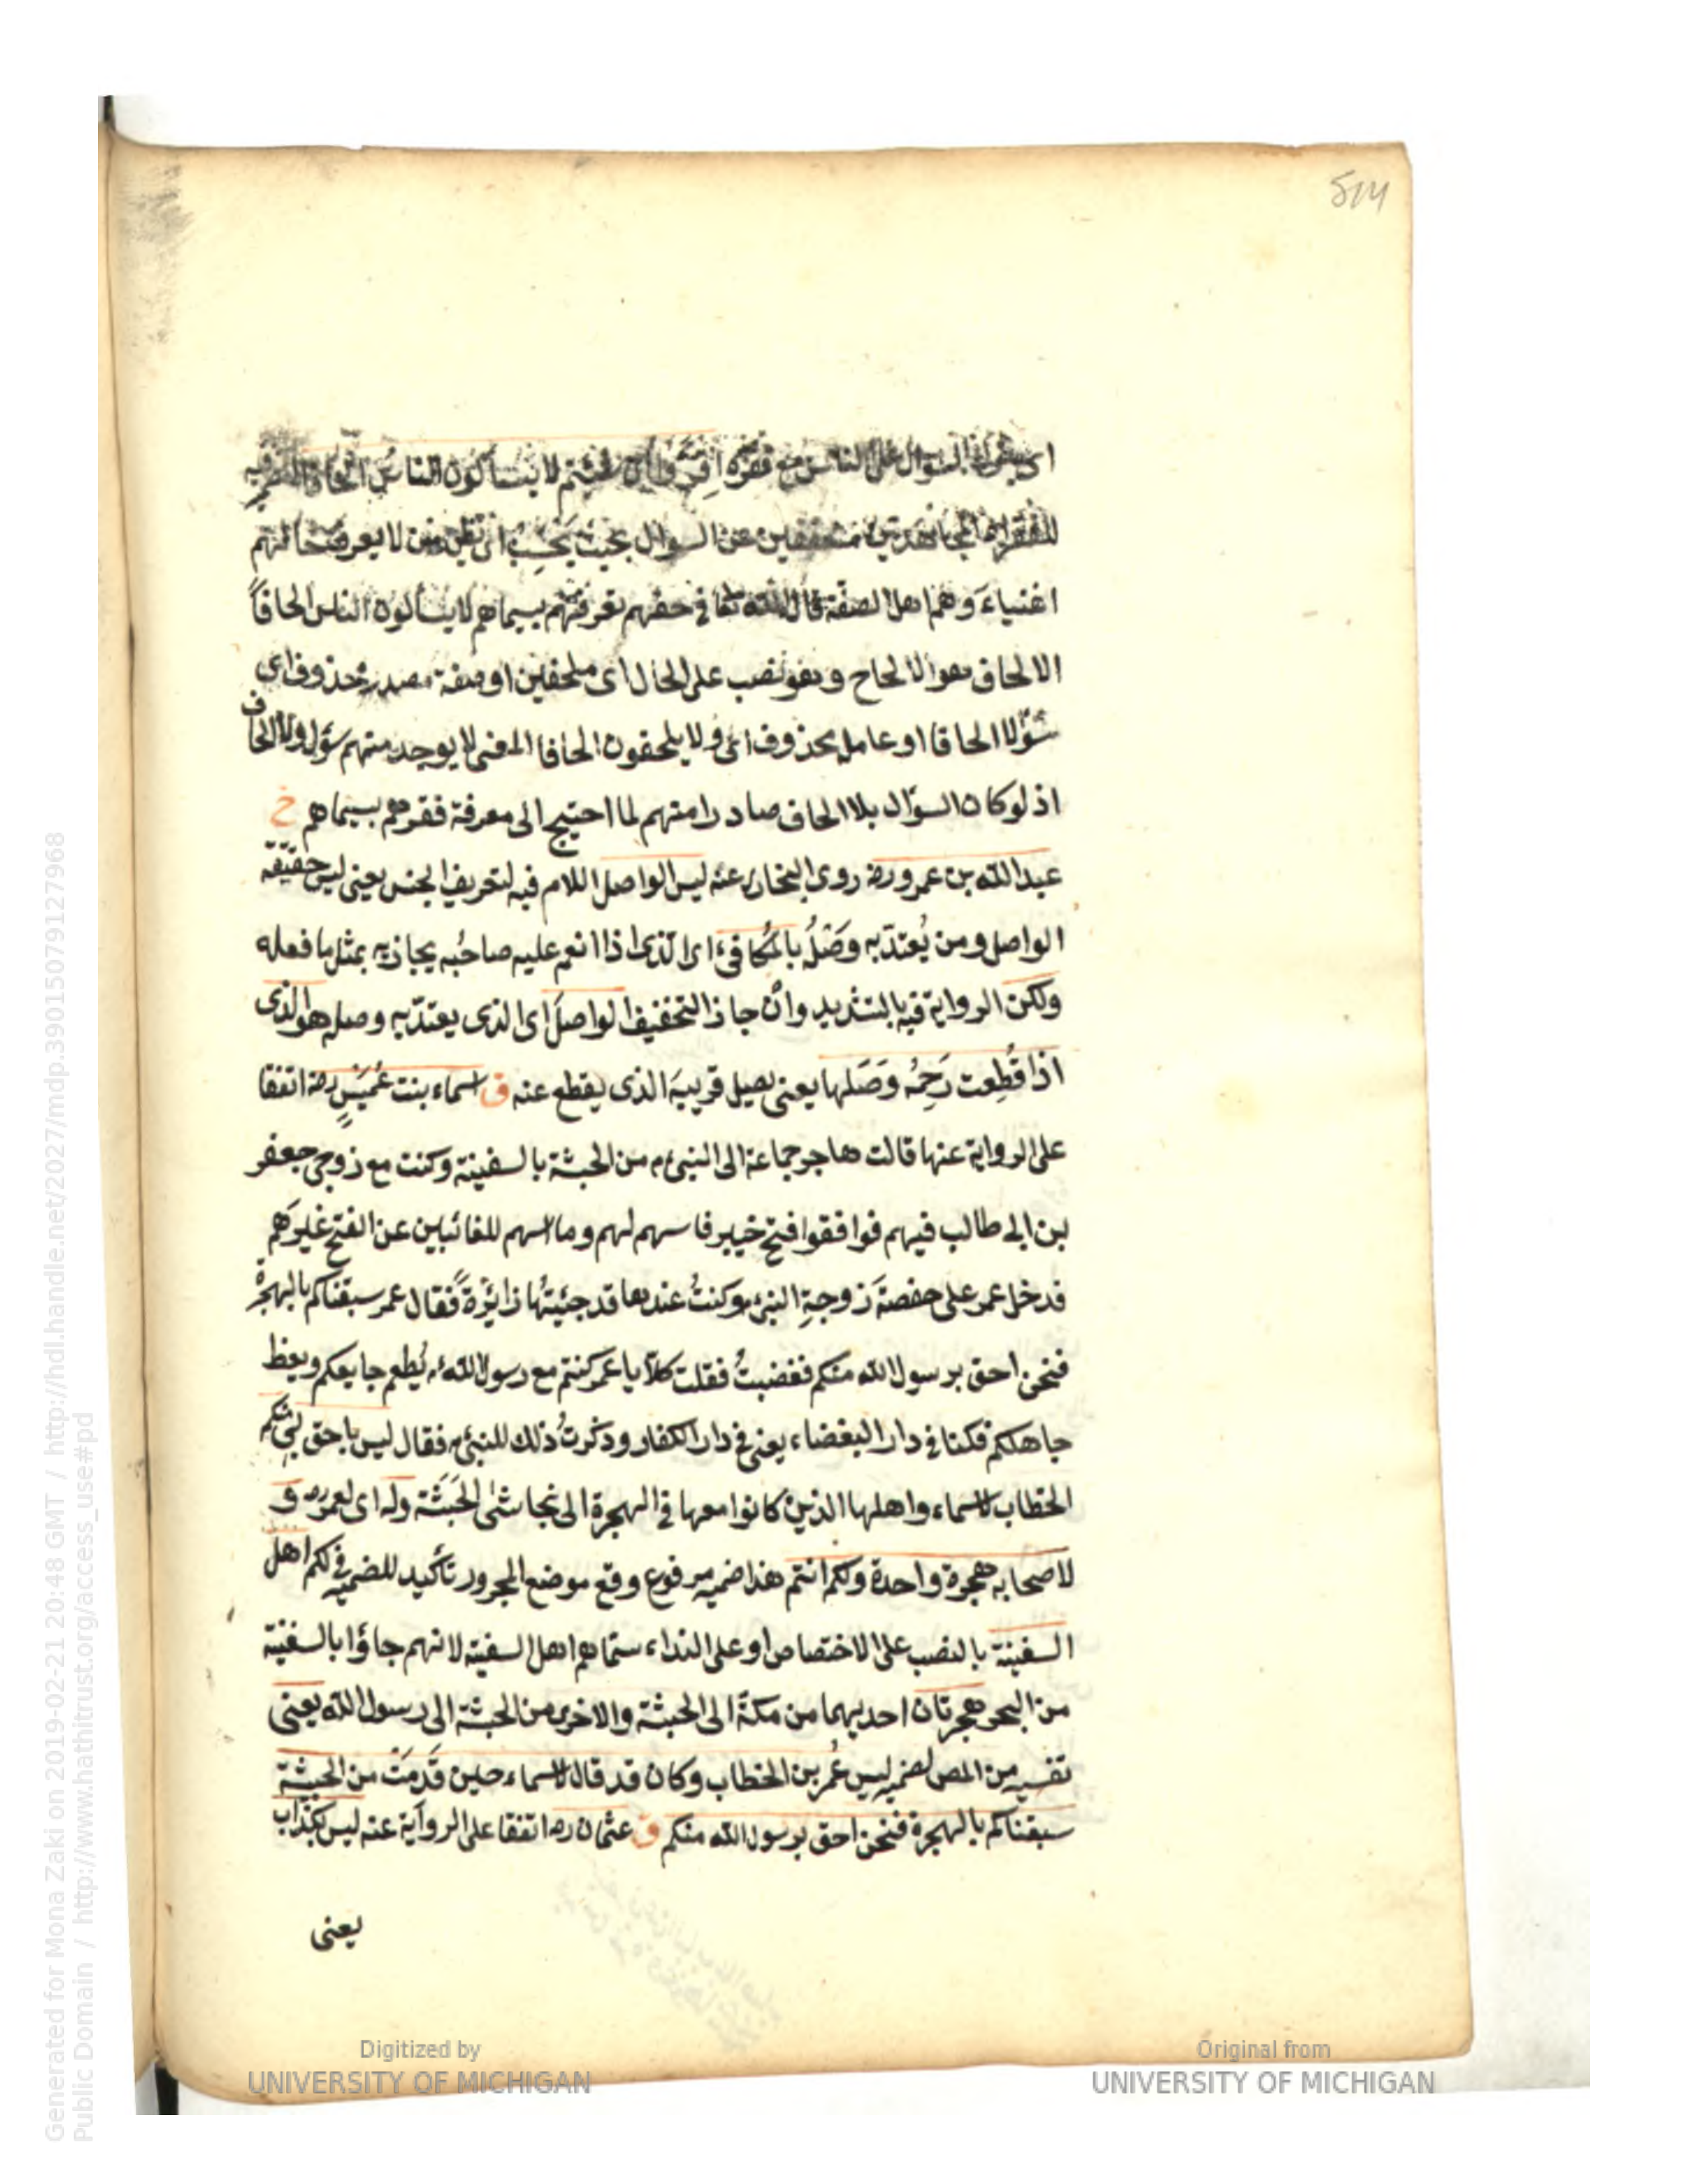 اى السؤال على الناس مع فقره اقرؤا ان شئتم لا يسألون الناس الحافا
للفقراء المجاهدين متعففين عن السوال بحيث يحسب ان من لا يعرف حالهم
اغنياءَ وهم اهل الصفة قال الله تعا فى حقهم تعرفهم بسيماهم لا يسألون الناس الحافاً
الالحاف هو الالحاح وهو نصب على الحال اى ملحفين او صفة مصدر محذوف اى
سؤالا الحافا او عامله محذوف اى ولا يلحفون الحافا المعنى لا يوجد منهم سؤال ولا الحاف
اذ لو كان السؤال بلا الحاف صادرا منهم لما احتيج الى معرفة فقرهم بسيماهم خ
عبد الله بن عمرو رضه روى البخارى عنه ليس الواصل اللام فيه لتعريف الجنس يعنى ليس حقيقة
الواصل ومن يُعتدّ به وصْلُه بالمُكافىء اى الذى اذا انعم عليه صاحبُه يجازيه بمثل ما فعله
ولكن الرواية فيه بالتشديد وانْ جاز التخفيف الواصلَ اى الذى يعتدّ به وصله هو الذى
اذا قُطِعت رَحِمُه وَصَلها يعنى يصيل قريبَه الذى يقطع عنه ق اسماء بنت عُمَيْسٍ رضه اتفقا
على الرواية عنها قالت هاجر جماعة الى النبىء م من الحبشة بالسفينة وكنت مع زوجى جعفر
بن ابى طالب فيهم فوافقوا فتح خيبر فاسهم لهم وما اسهم للغائبين عن الفتح غيرَهم
فدخل عمر على حفصةَ زوجةِ النبىء وكنتُ عندها قد جئيتُها زائرةً فقال عمر سبقناكم بالهجرة
فنحن احق برسول الله منكم فغضبتُ فقلت كلاّ يا عمر كنتم مع رسول الله يُطعم جايعكم ويعظ
جاهلكم فكنا فى دار البغضاء يعنى فى دار الكفار وذكرتُ ذلك للنبىء فقال ليس باحق بى منكم
الخطاب لاسماء واهلها الذين كانوا معها فى الهجرة الى نجاشى الحَبَشَة وله اى لعمر رضه و
لاصحابه هجرة واحدة ولكم انتم هذا ضمير مرفوع وقع موضع المجرور تأكيد للضمير فى لكم اهل
السفينة بالنصب على الاختصاص او على النداء سمّاهم اهل السفينة لانهم جاؤا بالسفينة
من البحر هجرتان احديهما من مكة الى الحبشة والاخرى من الحبشة الى رسول الله يعنى
تفسير من المص لضمير ليس عُمر بن الخطاب وكان قد قال لاسماء حين قَدِمَتْ من الحبشة
سبقناكم بالهجرة فنحن احق برسول الله منكم ق عثمان رضه اتفقا على الرواية عنه ليس بكذاب
يعنى
Digitized by
UNIVERSITY OF MICHIGAN
Original from
UNIVERSITY OF MICHIGAN
Generated for Mona Zaki on 2019-02-21 20:48 GMT / http://hdl.handle.net/2027/mdp.39015079127968
Public Domain / http://www.hathitrust.org/access_use#pd